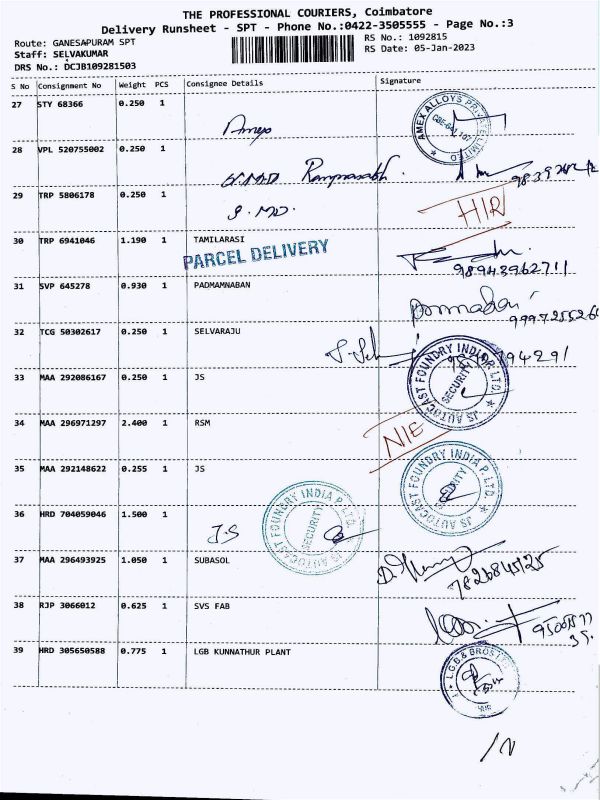 THE PROFESSIONAL COURIERS, Coimbatore
Delivery Runsheet - SPT - Phone No.:0422-3505555 - Page No.:3
Route: GANESAPURAM SPT
RS No.: 1092815
Staff: SELVAKUMAR
RS Date: 05-Jan-2023
DRS No.: DCJB109281503
S No Consignment No Weight PCS Consignee Details Signature
27 STY 68366 0.250 1
Amex
AMEX ALLOYS PRIVATE LIMITED
28 VPL 520755002 0.250 1
29 TRP 5806178 0.250 1
HIR
30 TRP 6941046 1.190 1 TAMILARASI
PARCEL DELIVERY
98943962711
31 SVP 645278 0.930 1 PADMAMNABAN
32 TCG 50302617 0.250 1 SELVARAJU
33 MAA 292086167 0.250 1 JS
JS AUTOCAST FOUNDRY INDIA P. LTD.
SECURITY
34 MAA 296971297 2.400 1 RSM
NIE
35 MAA 292148622 0.255 1 JS
JS AUTOCAST FOUNDRY INDIA P. LTD.
SECURITY
36 HRD 704059046 1.500 1
JS
JS AUTOCAST FOUNDRY INDIA P. LTD.
SECURITY
37 MAA 296493925 1.050 1 SUBASOL
38 RJP 3066012 0.625 1 SVS FAB
39 HRD 305650588 0.775 1 LGB KUNNATHUR PLANT
L.G.B & BROS